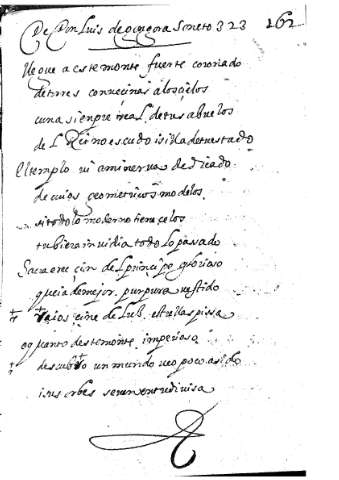 De Don Luis de gongora Soneto 323 262
llegue a este monte fuerte coronado
de torres convecinas a los çielos
cuna sienpre real de tus abuelos
del Reino escudo i silla de tu estado
El templo vi a minerva dedicado
de cuios geometricos modelos
si todo lo moderno tiene çelos
tubiera invidia todo lo pasado
Sacra ereçion del prinçipe glorioso
que ia de mejor purpura vestido
raios çiñe de luz estrellas pissa
o quanto deste monte imperioso
descubro un mundo veo poco a sido
i sus orbes seren en tu divisa